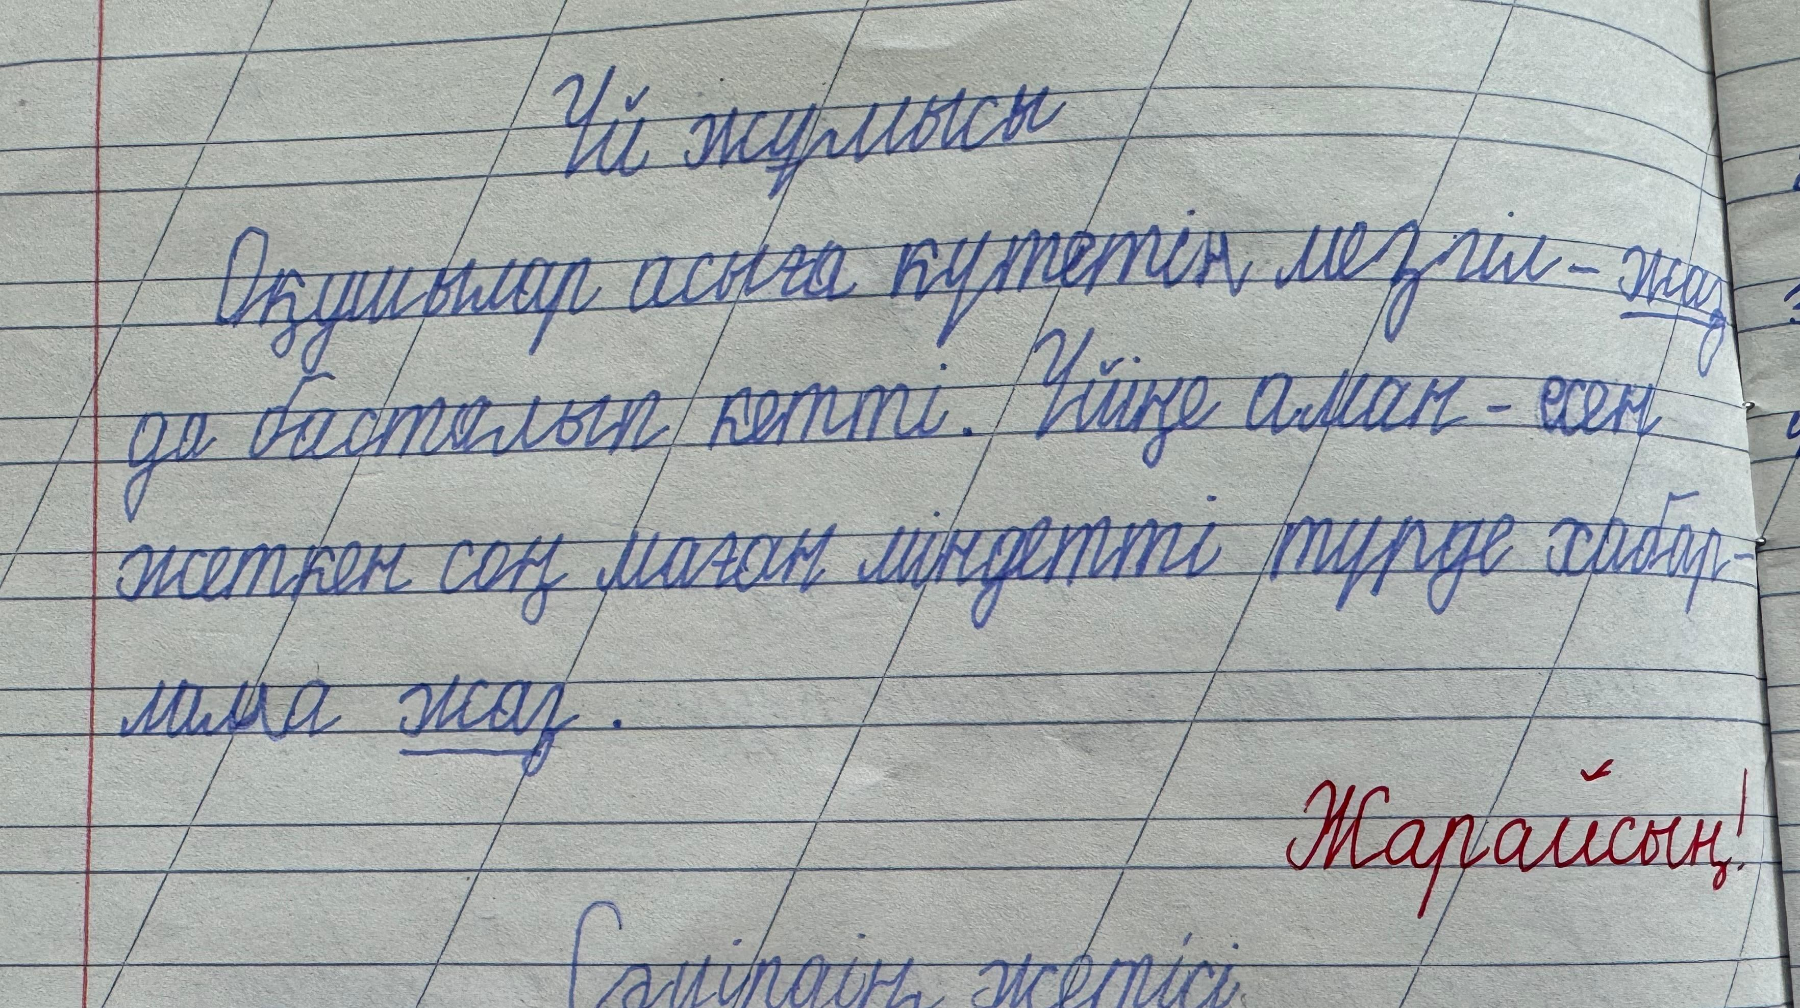 Үй жұмысы
Оқушылар асыға күтетін мезгіл - жаз
да басталып кетті. Үйіңе аман - есен
жеткен соң маған міндетті түрде хабар-
лама жаз.
Жарайсың!
жетісі